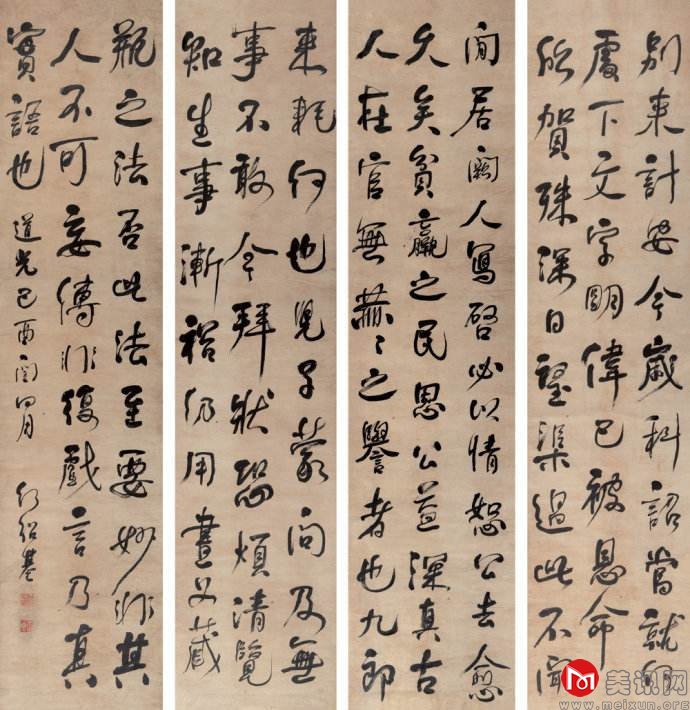 別来計安今歲科詔當就何
處下文字明偉已被恩命
所賀殊深日望渠過此不聞
閒居闕人寫啓必以情恕公去愈
久矣貧羸之民思公益深真古
人在官無赫〻之譽者也九郎
来耗何也兒子蒙問及無
事不敢令拜狀恐煩清覽
知生事漸裕仍用畫叉藏
瓶之法否此法至要妙非其
人不可妄傳非復戲言乃真
實語也 道光己酉閏四月 何紹基
美讯网
www.meixun.org